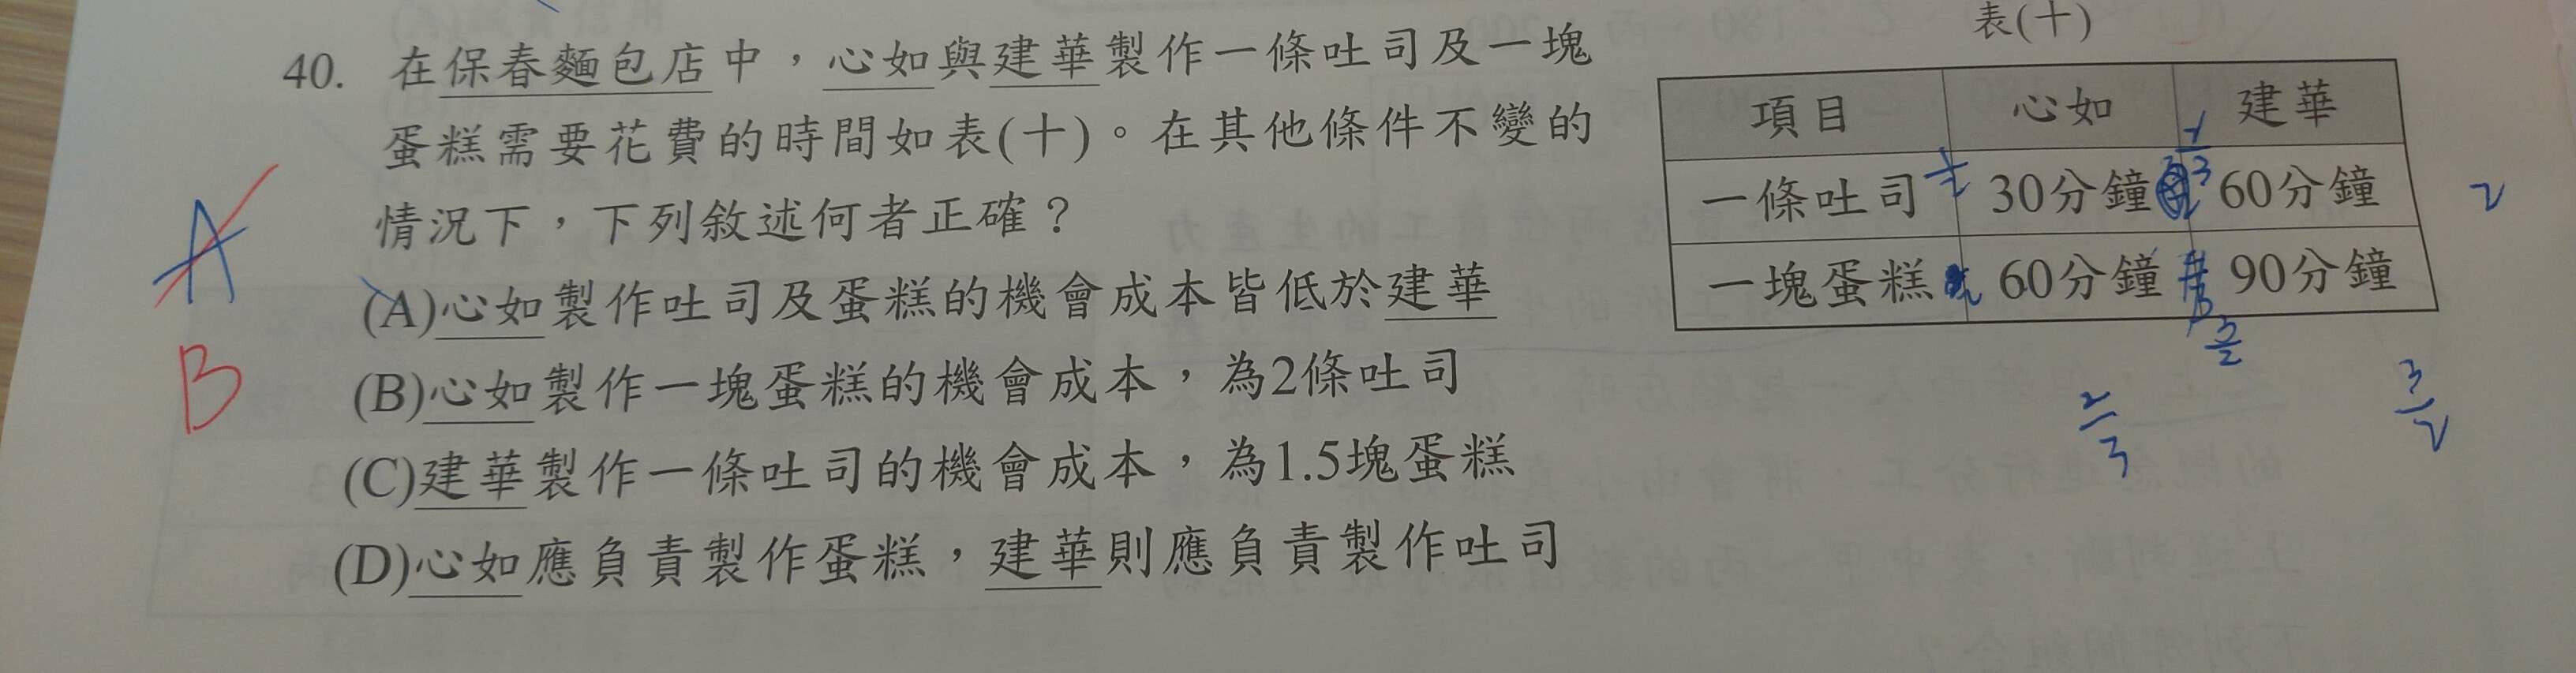 表(十)
40. 在保春麵包店中，心如與建華製作一條吐司及一塊
蛋糕需要花費的時間如表(十)。在其他條件不變的
情況下，下列敘述何者正確？
(A)心如製作吐司及蛋糕的機會成本皆低於建華
(B)心如製作一塊蛋糕的機會成本，為2條吐司
(C)建華製作一條吐司的機會成本，為1.5塊蛋糕
(D)心如應負責製作蛋糕，建華則應負責製作吐司
A
B
項目 心如 建華
一條吐司 30分鐘 60分鐘
一塊蛋糕 60分鐘 90分鐘
2
3/2
2/3
3/2